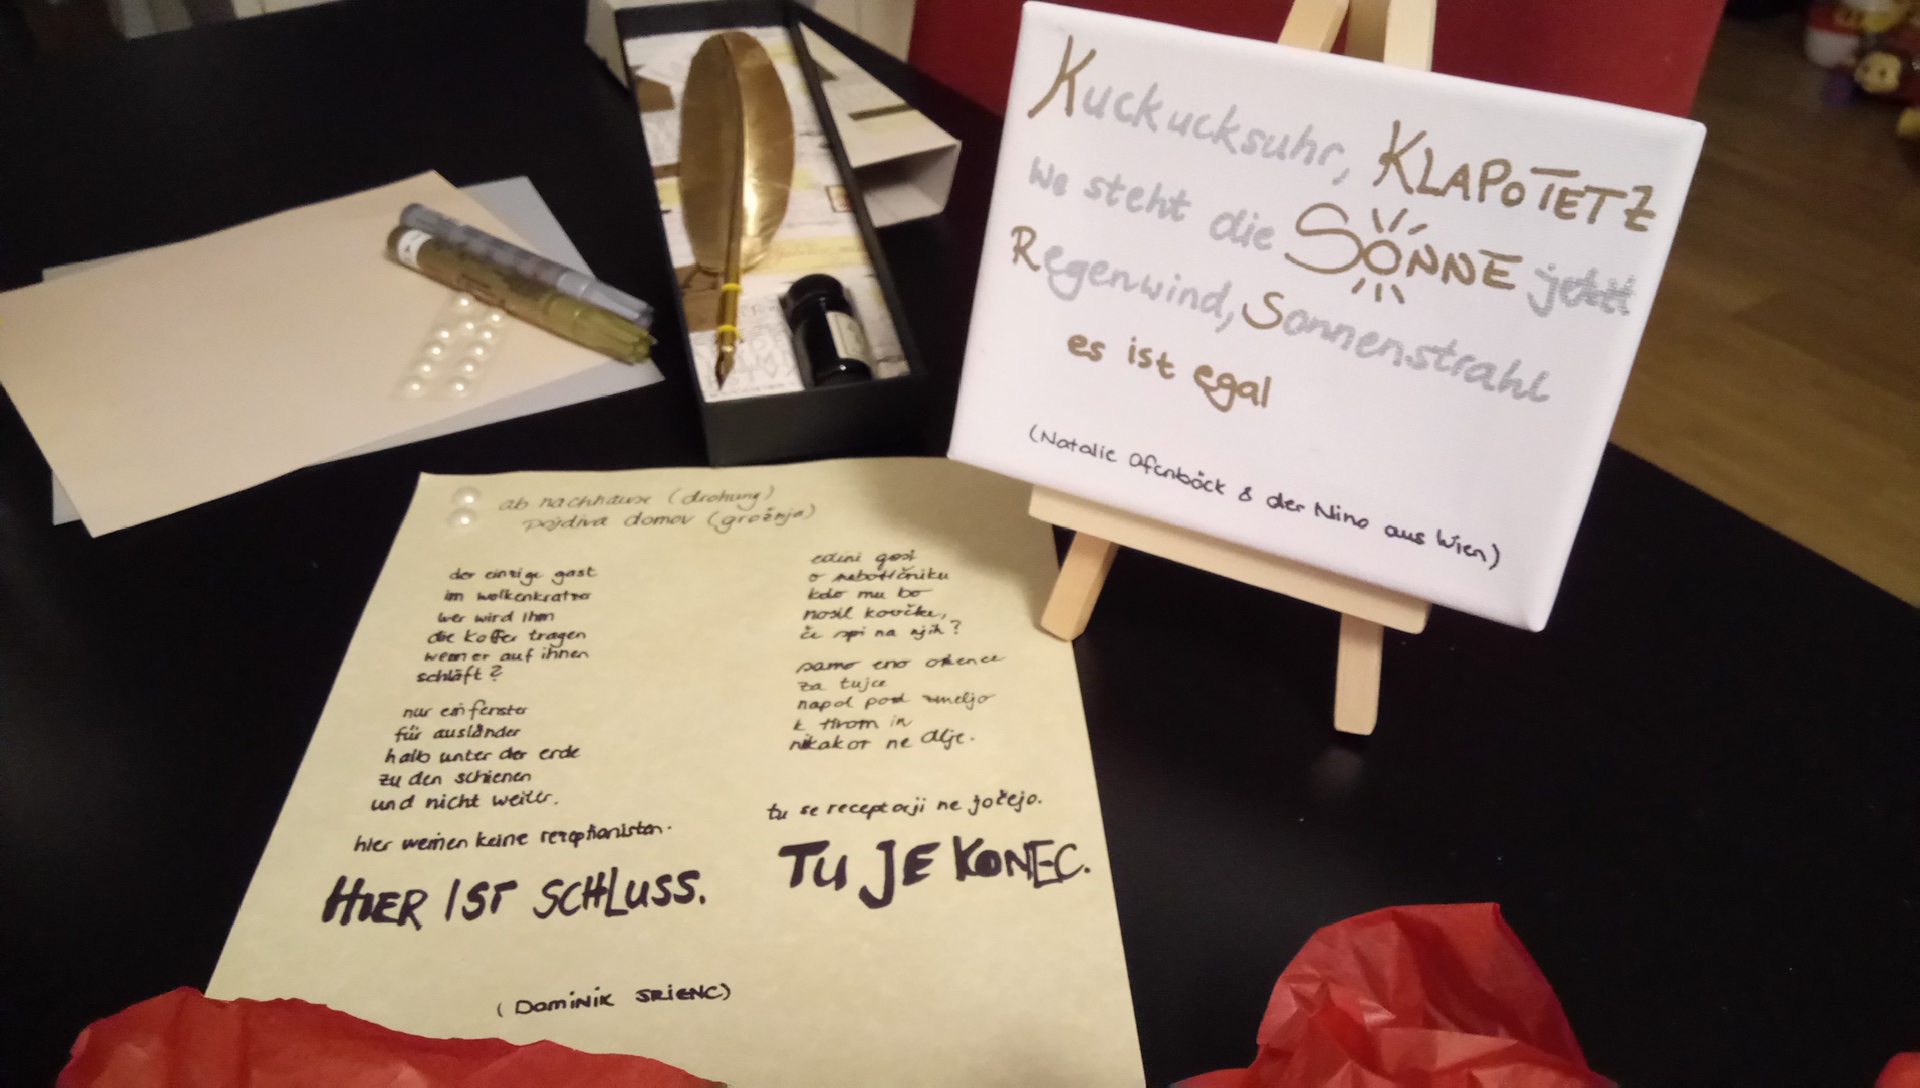 Kuckucksuhr, KLAPOTETZ
wo steht die SONNE jetzt
Regenwind, Sonnenstrahl
es ist egal
(Natalie Ofenböck & der Nino aus Wien)
ab nachhause (drohung)
pojdiva domov (grožnja)
der einzige gast
im wolkenkratzer
wer wird ihm
die koffer tragen
wenn er auf ihnen
schläft?
nur ein fenster
für ausländer
halb unter der erde
zu den schienen
und nicht weiter.
hier weinen keine rezeptionisten.
HIER IST SCHLUSS.
edini gost
o nebotičniku
kdo mu bo
nosil kovčke,
če spi na njih?
samo eno okence
za tujce
napol pod zemljo
k tirom in
nikakor ne dlje.
tu se receptorji ne jočejo.
TU JE KONEC.
(Dominik SRIENC)